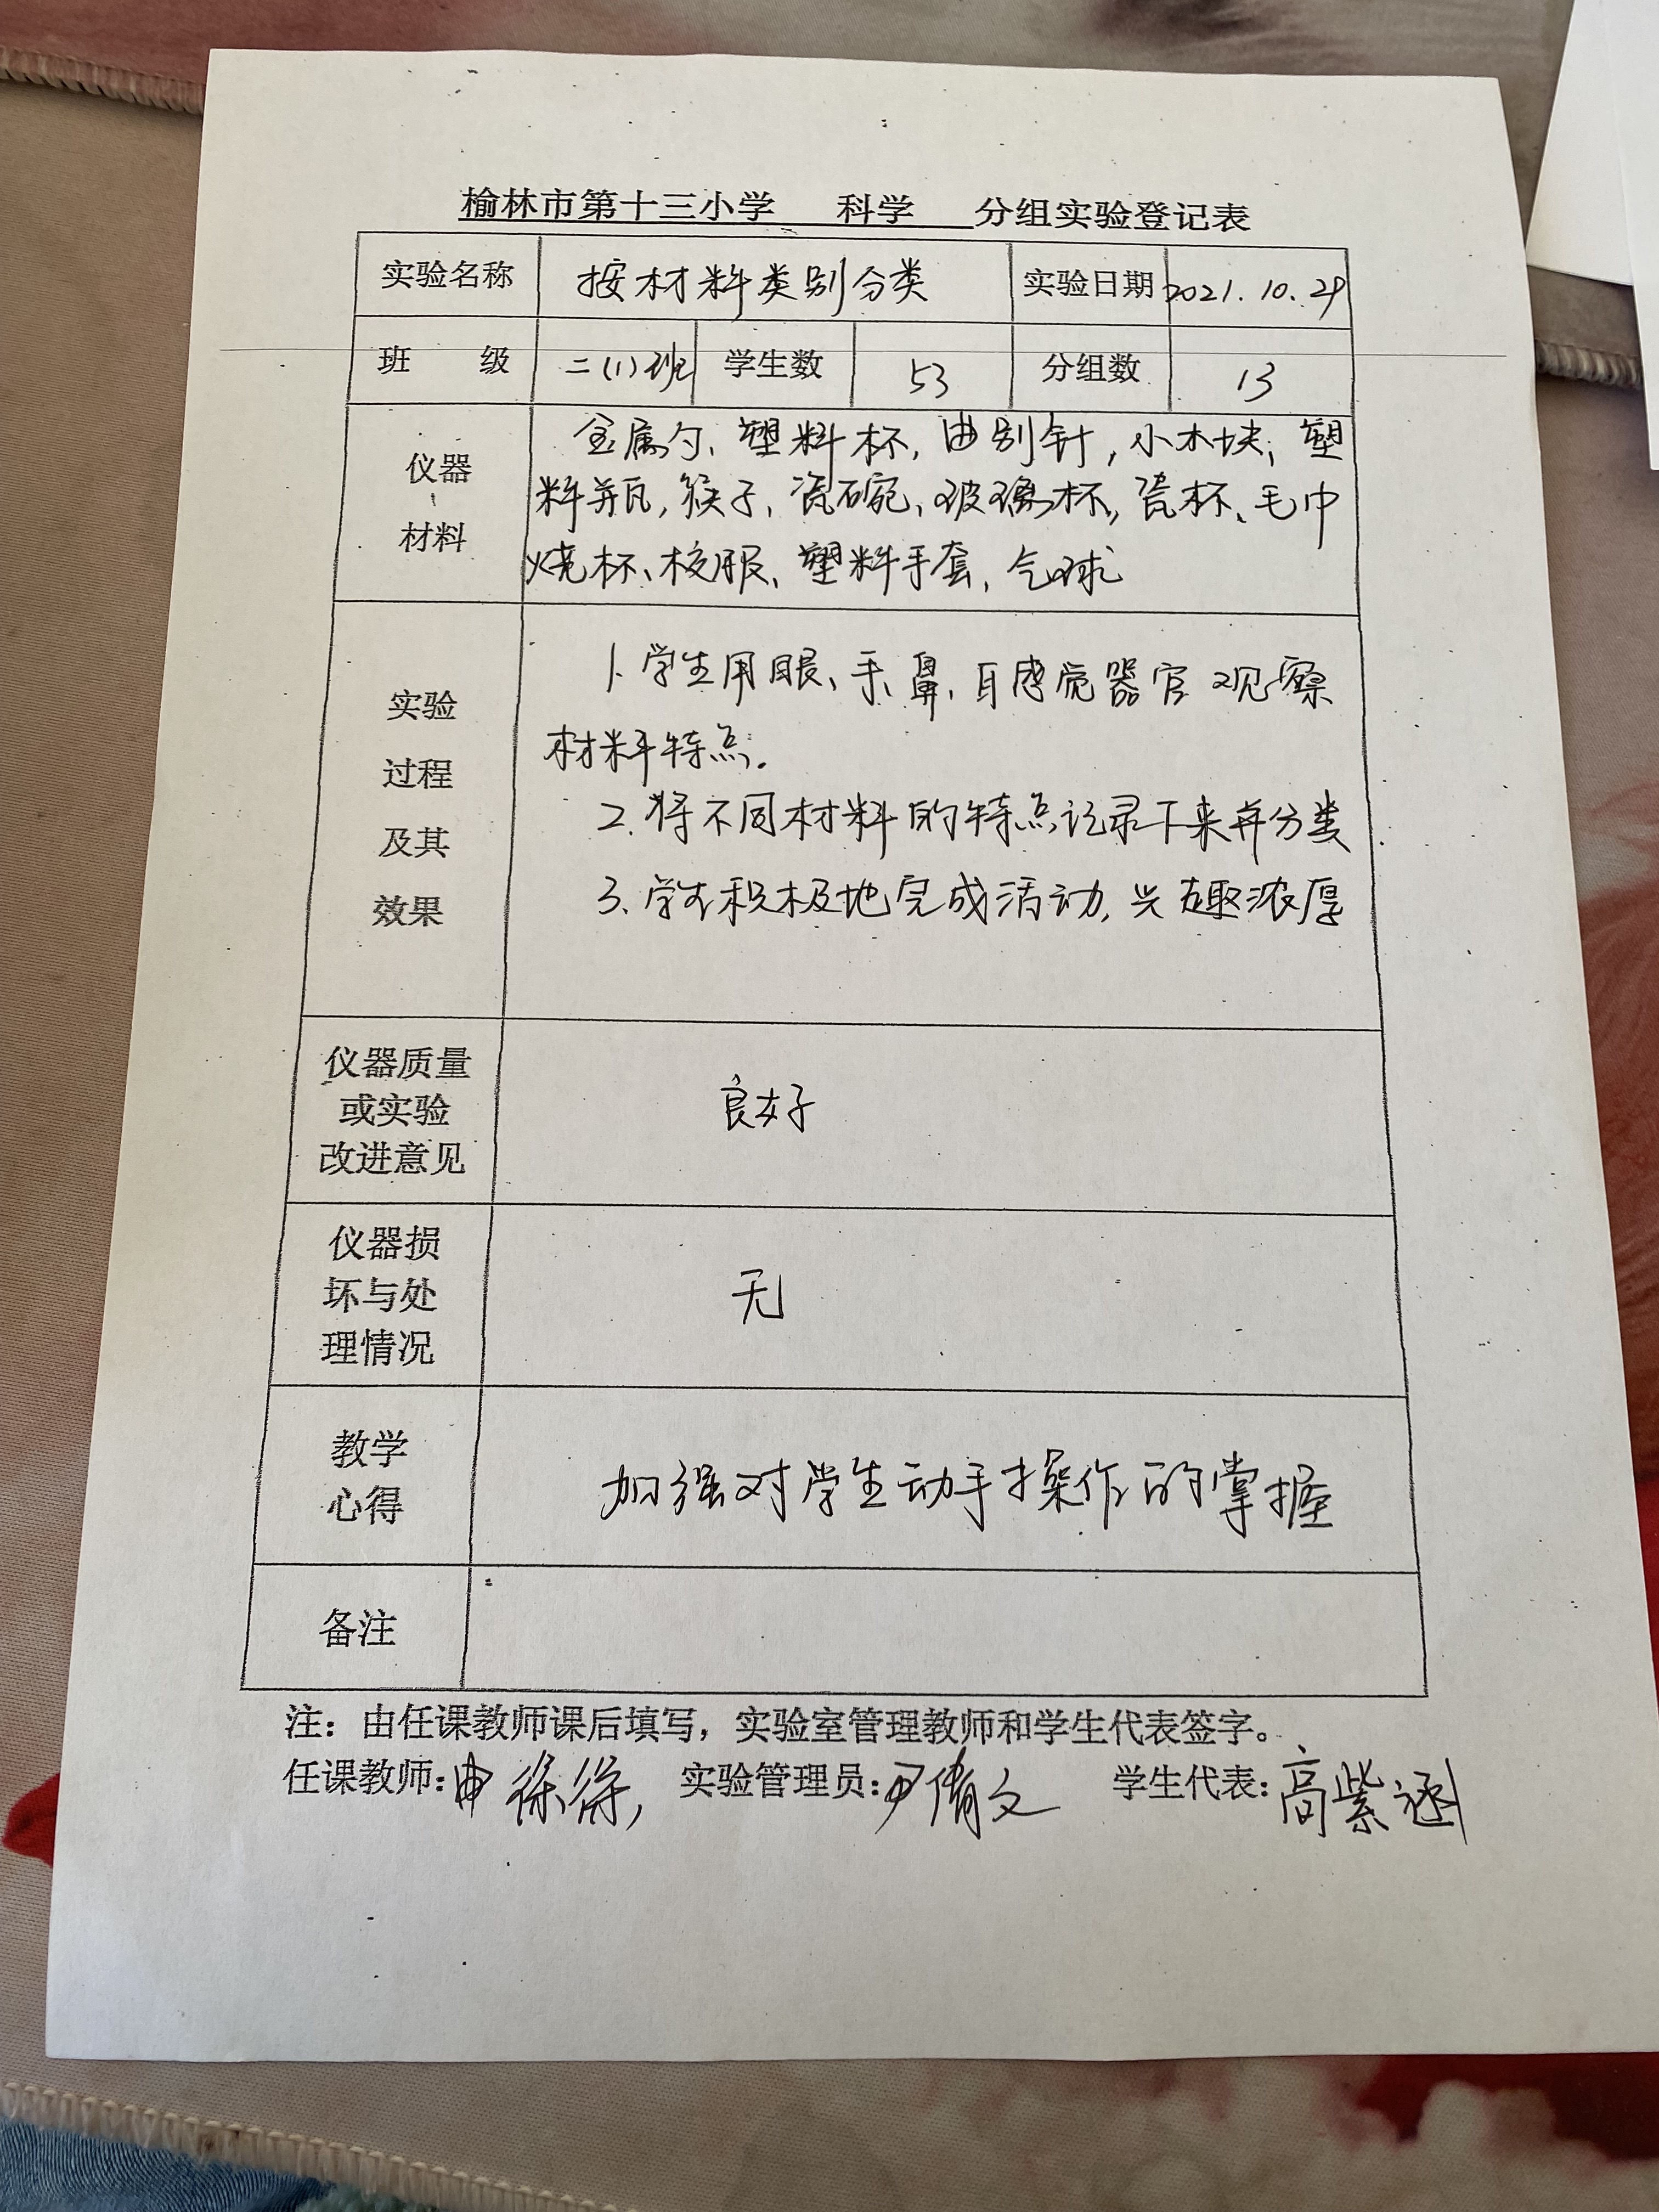 榆林市第十三小学 科学 分组实验登记表
实验名称 按材料类别分类 实验日期 2021.10.29
班 级 二(1)班 学生数 53 分组数 13
仪器、材料
金属勺、塑料杯,曲别针,小木块,塑
料瓶,筷子、瓷碗、玻璃杯,瓷杯、毛巾
烧杯、校服、塑料手套、气球
实验
过程
及其
效果
1.学生用眼、手、鼻、耳感觉器官观察
材料特点.
2.将不同材料的特点记录下来并分类.
3.学生积极地完成活动,兴趣浓厚
仪器质量
或实验
改进意见
良好
仪器损
坏与处
理情况
无
教学
心得
加强对学生动手操作的掌握
备注
注:由任课教师课后填写,实验室管理教师和学生代表签字。
任课教师:申 实验管理员:尹倩文 学生代表:高紫涵